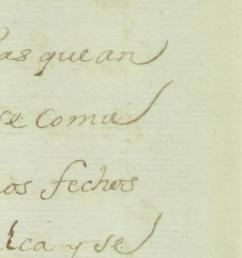 as que an
se comu
os fechos
lca y se